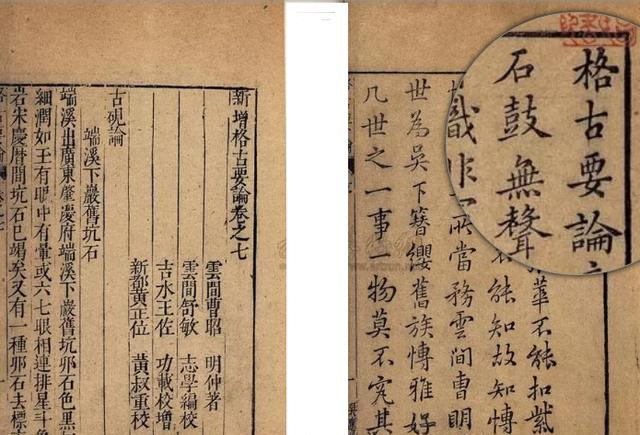 新增格古要論卷之七
雲間曹昭 明仲著
雲間舒敏 志學編校
吉水王佐 功載校增
新都黃正位 黃叔重校
古硯論
端溪下巖舊坑石
端溪出廣東肇慶府端溪下巖舊坑卵石色黑
細潤如玉有眼中有暈或六七眼相連排星斗
岩宋慶曆間坑石已竭矣又有一種卵石去標
格古要論
石鼓無聲
華不能扣紫
不能知故知博
所當務雲間曹明
世為吳下簪纓舊族博雅好
凡世之一事一物莫不究其